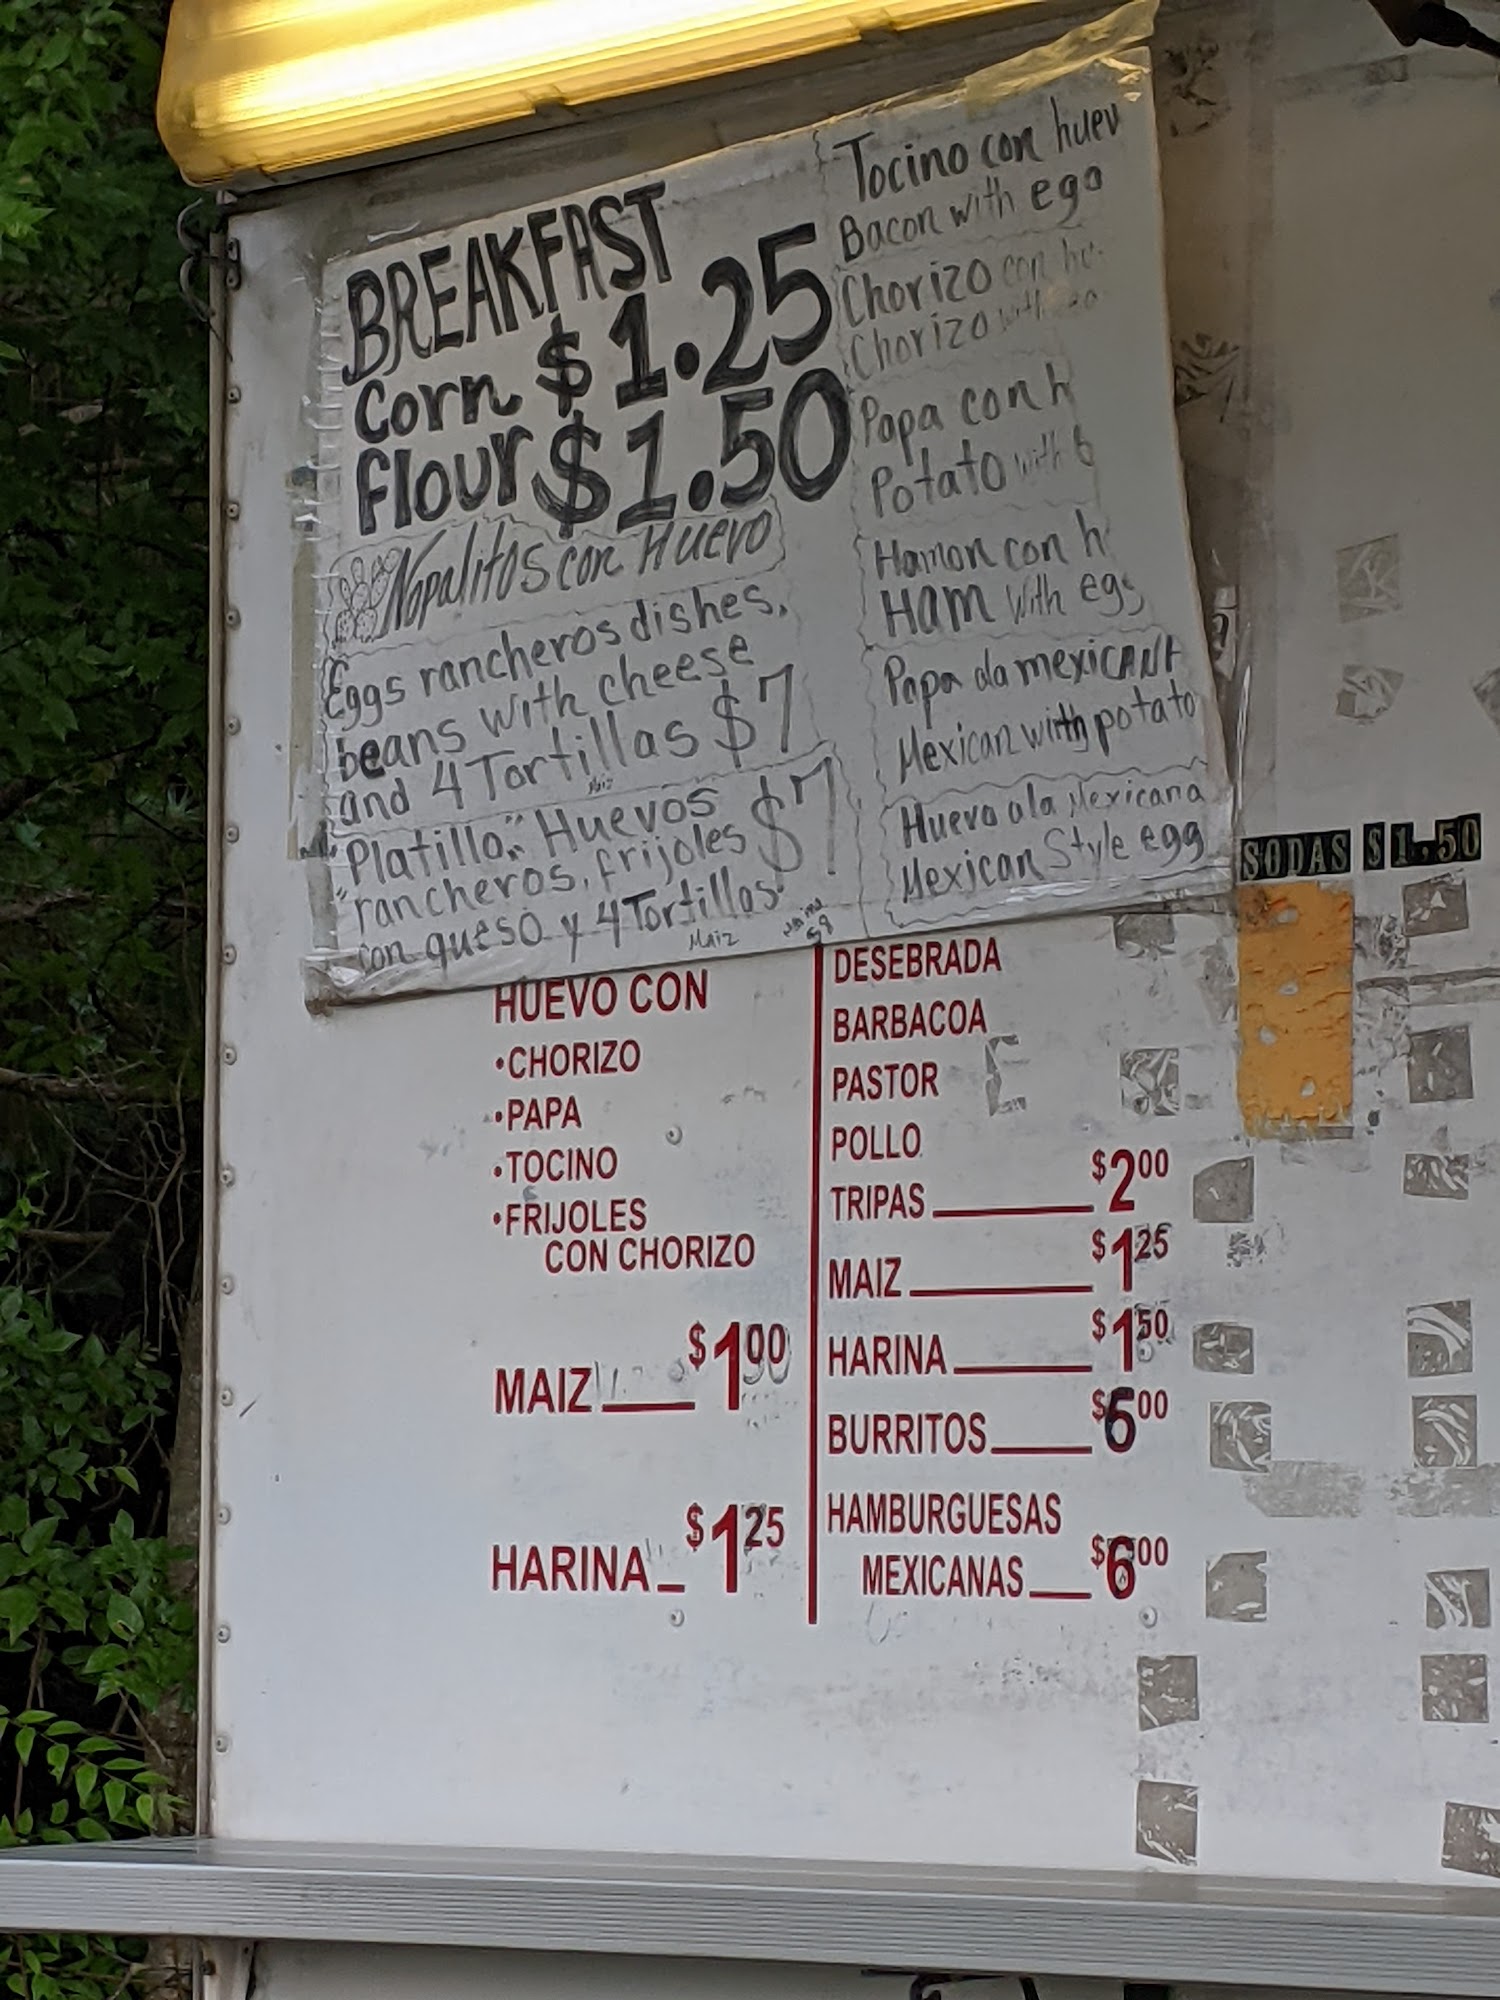 BREAKFAST
Corn $1.25
flour $1.50
Nopalitos con Huevo
Eggs rancheros dishes,
beans with cheese
and 4 Tortillas $7
Maiz
Platillo: Huevos $7
rancheros, frijoles
con queso y 4 Tortillas
Maiz
Tocino con huev
Bacon with egg
Chorizo con
Chorizo with
Papa con h
Potato with
Hamon con h
HAM with egg
Papa ala mexicana
Mexican with potato
Huevo ala Mexicana
Mexican Style egg
SODAS $1.50
HUEVO CON
•CHORIZO
•PAPA
•TOCINO
•FRIJOLES
CON CHORIZO
MAIZ $1.00
HARINA $1.25
DESEBRADA
BARBACOA
PASTOR
POLLO
TRIPAS $2.00
MAIZ $1.25
HARINA $1.50
BURRITOS $6.00
HAMBURGUESAS
MEXICANAS $6.00